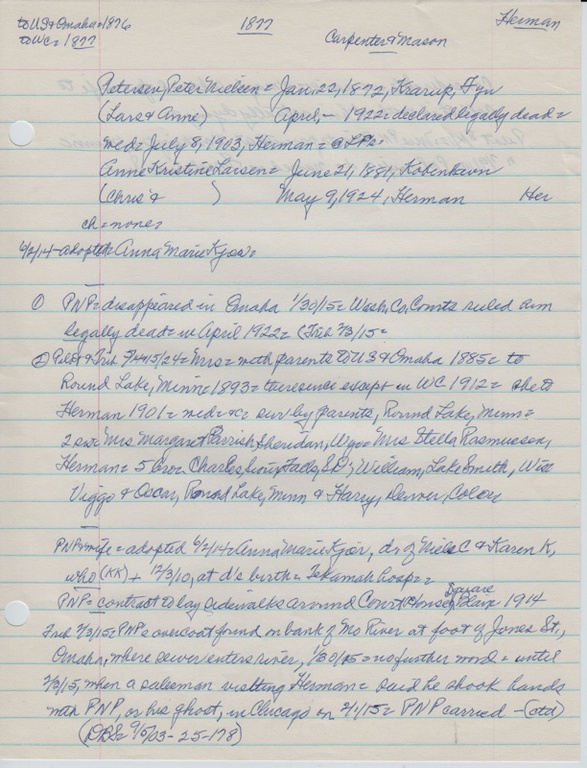 to US & Omaha = 1876
to WC = 1877
1877
Herman
Carpenter & Mason
Petersen, Peter Nielsen = Jan. 22, 1872, Krarup, Fyn
(Lars & Anne) April, - 1922 = declared legally dead =
med = July 8, 1903, Herman =
Anne Kristine Larsen = June 21, 1881, Kobenhavn
(Chris & ) May 9, 1924, Herman Her
ch = none =
6/2/14 - adopted = Anna Marie Kjor =
① PNP = disappeared in Omaha 1/30/15 = Wash. Co. Courts ruled him
legally dead = in April 1922 = (Trib 2/3/15 =
② Pilot & Trib 5/14-15/24 = Mrs = with parents to US & Omaha 1885 = to
Round Lake, Minn = 1893 = thereafter except in WC 1912 = she to
Herman 1901 = med = = sur by parents, Round Lake, Minn =
2 sis = Mrs Margaret Parrish, Sheridan, Wyo = Mrs Stella Rasmussen,
Herman = 5 bros = Charles, Sioux Falls, SD; William, Lake Smith, Wis
Viggo & Oscar, Round Lake, Minn & Harry, Denver, Colou
PNP & wife = adopted 6/2/14 = Anna Marie Kjor, dr of Niels C & Karen K,
who (KK) + 12/3/10, at d's birth = Tekamah hosp =
PNP = contract to lay sidewalks around Court House Square, Blair 1914
Trib 2/3/15 = PNP's overcoat found on bank of Mo River at foot of Jones St.,
Omaha, where sewer enters river, 1/30/15 = no further word = until
2/3/15, when a salesman visiting Herman = said he shook hands
with PNP, or his ghost, in Chicago on 2/1/15 = PNP carried - (otd)
(DBS = 9/5/03 - 25-178)